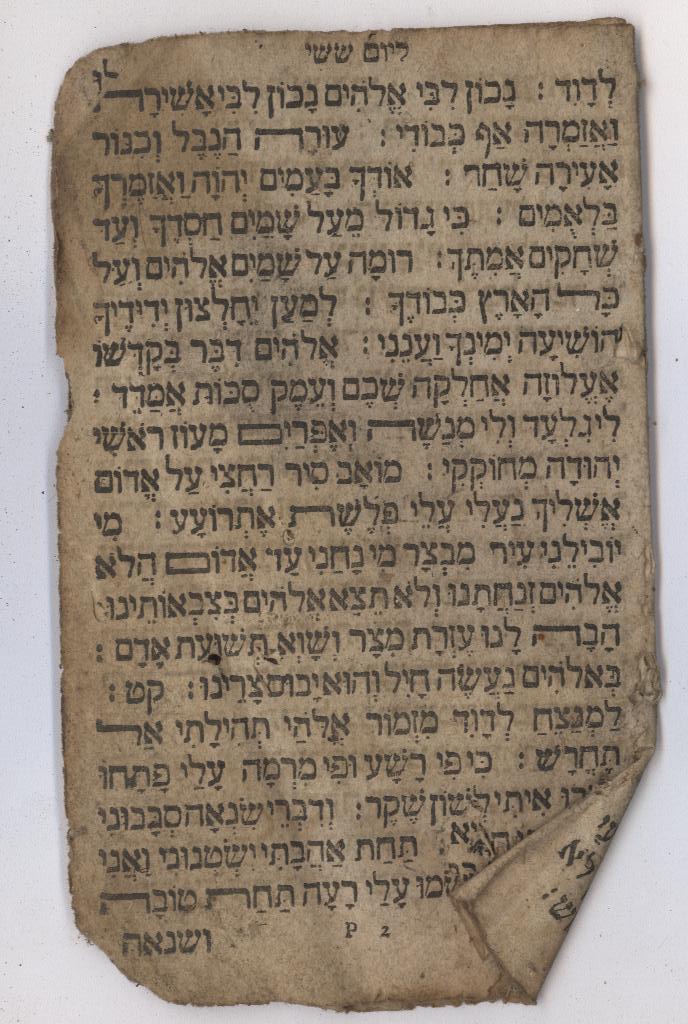 ליום ששי
לְדָוִד : נָכוֹן לִבִּי אֱלֹהִים נָכוֹן לִבִּי אָשִׁירָה
וַאֲזַמְּרָה אַף כְּבוֹדִי : עוּרָה הַנֵּבֶל וְכִנּוֹר
אָעִירָה שָּׁחַר : אוֹדְךָ בָעַמִּים יְהוָֹה וַאֲזַמֶּרְךָ
בַּלְאֻמִּים : כִּי גָדוֹל מֵעַל שָׁמַיִם חַסְדֶּךָ וְעַד
שְׁחָקִים אֲמִתֶּךָ : רוּמָה עַל שָׁמַיִם אֱלֹהִים וְעַל
כָּל הָאָרֶץ כְּבוֹדֶךָ : לְמַעַן יֵחָלְצוּן יְדִידֶיךָ
הוֹשִׁיעָה יְמִינְךָ וַעֲנֵנִי : אֱלֹהִים דִּבֶּר בְּקָדְשׁוֹ
אֶעְלוֹזָה אֲחַלְּקָה שְׁכֶם וְעֵמֶק סֻכּוֹת אֲמַדֵּד :
לִי גִלְעָד וְלִי מְנַשֶּׁה וְאֶפְרַיִם מָעוֹז רֹאשִׁי
יְהוּדָה מְחוֹקְקִי : מוֹאָב סִיר רַחְצִי עַל אֱדוֹם
אַשְׁלִיךְ נַעֲלִי עֲלֵי פְּלֶשֶׁת אֶתְרוֹעָע : מִי
יוֹבִילֵנִי עִיר מִבְצָר מִי נָחַנִי עַד אֱדוֹם הֲלֹא
אֱלֹהִים זְנַחְתָּנוּ וְלֹא תֵצֵא אֱלֹהִים בְּצִבְאוֹתֵינוּ :
הָבָה לָּנוּ עֶזְרָת מִצָּר וְשָׁוְא תְּשׁוּעַת אָדָם :
בֵּאלֹהִים נַעֲשֶׂה חָיִל וְהוּא יָבוּס צָרֵינוּ : קט :
לַמְנַצֵּחַ לְדָוִד מִזְמוֹר אֱלֹהֵי תְהִילָּתִי אַל
תֶּחֱרַשׁ : כִּי פִי רָשָׁע וּפִי מִרְמָה עָלַי פָּתָחוּ
אִיתִּי לְשׁוֹן שֶׁקֶר : וְדִבְרֵי שִׂנְאָה סְבָבוּנִי
תַּחַת אַהֲבָתִי יִשְׂטְנוּנִי וַאֲנִי
עָלַי רָעָה תַּחַת טוֹבָה
P 2
ושנאה